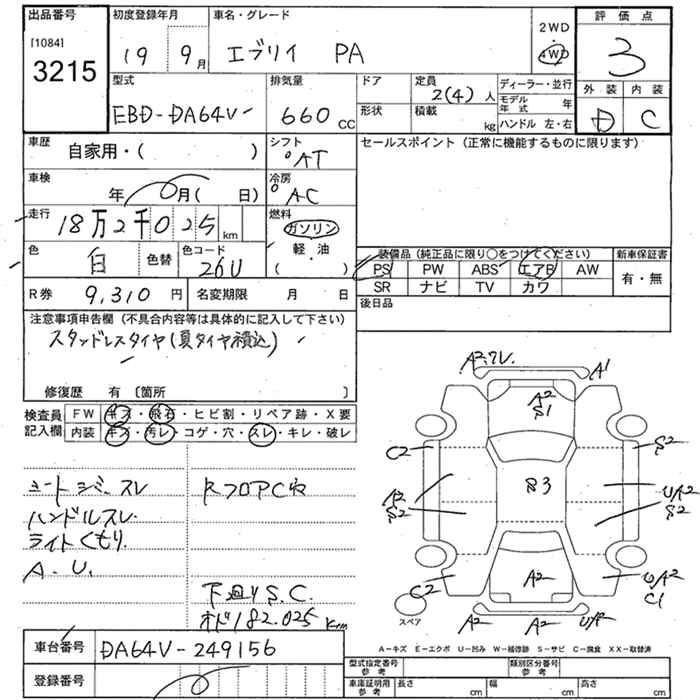 出品番号
[1084]
3215
初度登録年月
19 9月
車名・グレード
エブリイ PA
2WD
・
4WD
評価点
3
外装 内装
D C
型式
EBD-DA64V
排気量
660 cc
ドア
形状
定員
2(4)人
積載
kg
ディーラー・並行
モデル年式 年
ハンドル 左・右
車歴
自家用・( )
シフト
AT
セールスポイント (正常に機能するものに限ります)
車検
年 0月( 日)
冷房
AC
走行
18万2千025 km
燃料
ガソリン
軽・油
( )
色
白
色替
色コード
26U
装備品 (純正品に限り○をつけてください)
新車保証書
PS PW ABS エアB AW
有・無
SR ナビ TV カワ
R券 9,310 円
名変期限 月 日
後日品
注意事項申告欄 (不具合内容等は具体的に記入して下さい)
スタッドレスタイヤ(夏タイヤ積込)
修復歴 有 〔箇所 〕
検査員記入欄
FW キズ・飛石・ヒビ割・リペア跡・X要
内装 キズ・汚レ・コゲ・穴・スレ・キレ・破レ
シートシミ・スレ
RフロアC穴
ハンドルスレ
ライトくもり
A.U.
下廻りS.C.
オド182.025Km
A2.ワレ A1
A2
S1
C2 S2
A2
S2
S3
U/A2
S2
C2 A2 U/A2
C1
スペア
A2 A2 U/A2
A−キズ E−エクボ U−凹み W−補修跡 S−サビ C−腐食 XX−取替済
車台番号 DA64V-249156
登録番号
型式指定番号
参考
類別区分番号
参考
車庫証明用
参考
長さ cm 幅 cm 高さ cm